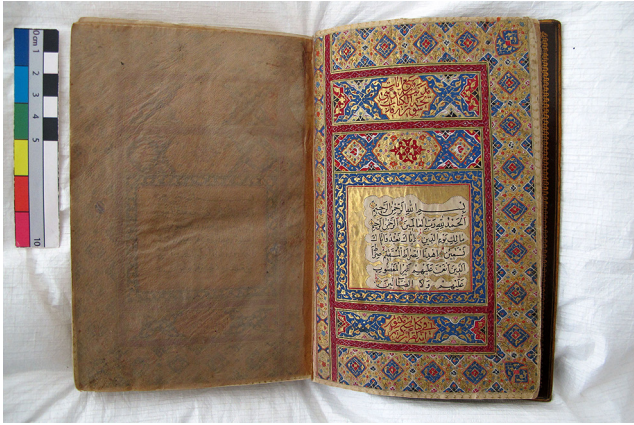 0 cm 1
2
3
4
5
10
بسم الله الرحمن الرحيم
الحمد لله رب العالمين الرحمن الرحيم
مالك يوم الدين اياك نعبد واياك
نستعين اهدنا الصراط المستقيم صراط
الذين انعمت عليهم غير المغضوب
عليهم ولا الضالين